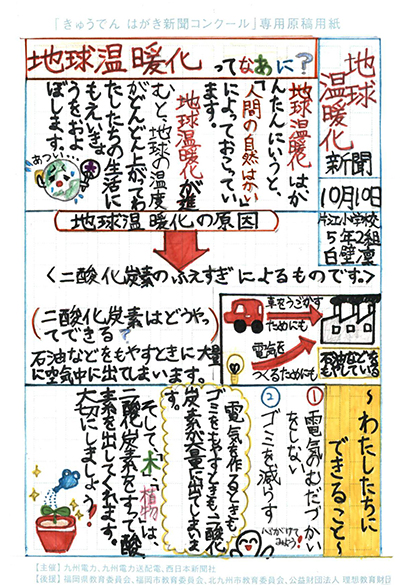 「きゅうでん はがき新聞コンクール」専用原稿用紙
地球
温暖化
新聞
10月10日
片江小学校
5年2組
白壁凛
地球温暖化ってなあに?
地球温暖化はか
んたんにいうと、
「人間の自然はかい」
によっておこってい
ます。
地球温暖化が進
むと、地球の温度
がどんどん上がってわ
たしたちの生活に
もえいきょ
うをおよ
ぼします。
あつい…
地球温暖化の原因
<二酸化炭素のふえすぎによるものです。>
(二酸化炭素はどうやっ
てできる)
石油などをもやすときに大量
に空気中に出てしまいます。
車をうごかす
ためにも
電気を
つくるためにも
石油などを
もやしている
〜わたしたちに
できること〜
①電気のむだづかい
をしない
②ゴミを減らす
心がけて
みよう!
電気を作るときも
ゴミをもやすときも二酸化
炭素が大量に出てしまいま
す。
そして、「木」「植物」は、
二酸化炭素をすって酸
素を出してくれます。
大切にしましょう!
【主催】九州電力、九州電力送配電、西日本新聞社
【後援】福岡県教育委員会、福岡市教育委員会、北九州市教育委員会、公益財団法人 理想教育財団